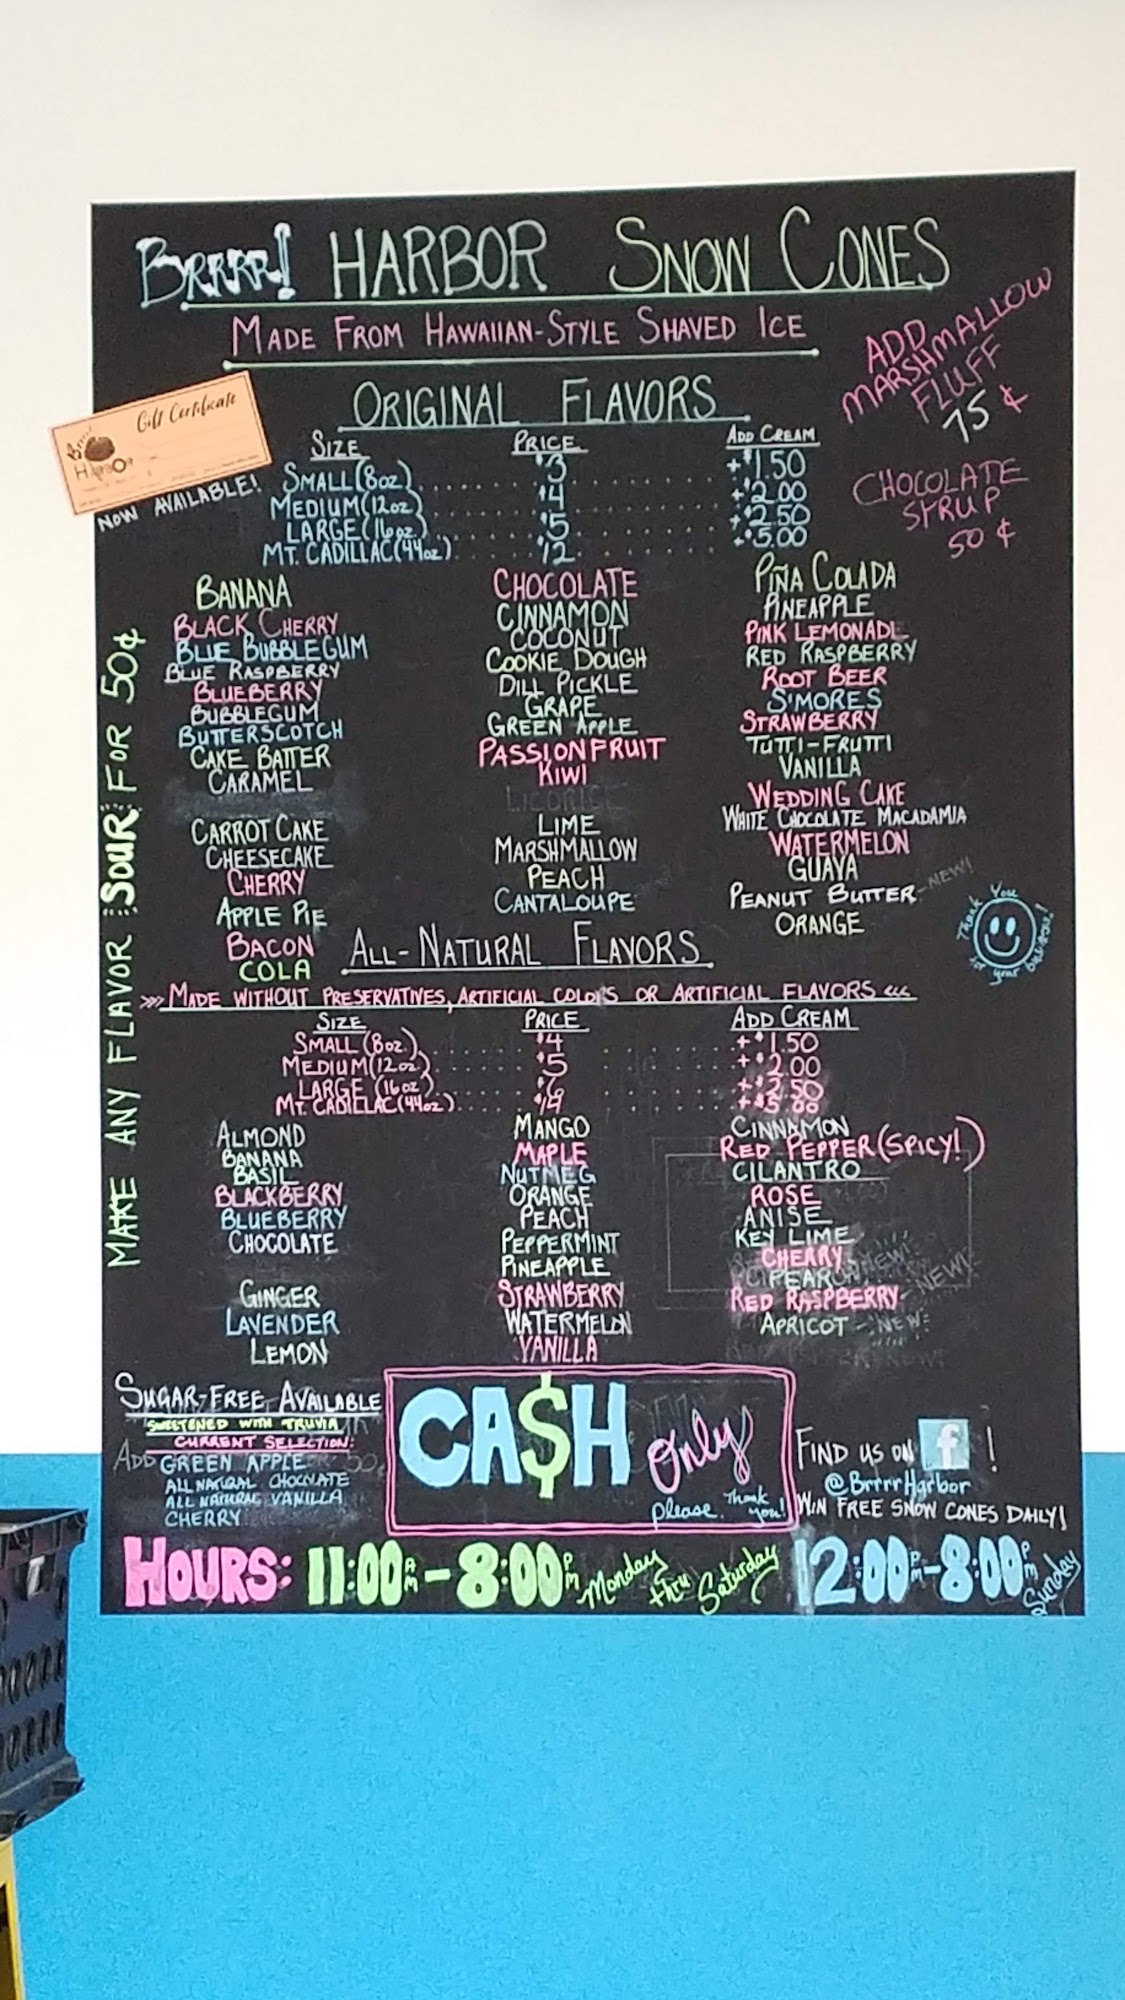 BRRRR! HARBOR SNOW CONES
MADE FROM HAWAIIAN-STYLE SHAVED ICE
ADD
MARSHMALLOW
FLUFF
75¢
CHOCOLATE
SYRUP
50¢
Gift Certificate
Brrrr!
HARBOR
NOW AVAILABLE!
ORIGINAL FLAVORS
SIZE PRICE ADD CREAM
SMALL (8oz) $3 +$1.50
MEDIUM (12oz) $4 +$2.00
LARGE (16oz.) $5 +$2.50
MT. CADILLAC (44oz) $12 +$5.00
MAKE ANY FLAVOR SOUR FOR 50¢
BANANA
BLACK CHERRY
BLUE BUBBLEGUM
BLUE RASPBERRY
BLUEBERRY
BUBBLEGUM
BUTTERSCOTCH
CAKE BATTER
CARAMEL
CARROT CAKE
CHEESECAKE
CHERRY
APPLE PIE
BACON
COLA
CHOCOLATE
CINNAMON
COCONUT
COOKIE DOUGH
DILL PICKLE
GRAPE
GREEN APPLE
PASSIONFRUIT
KIWI
LICORICE
LIME
MARSHMALLOW
PEACH
CANTALOUPE
PIÑA COLADA
PINEAPPLE
PINK LEMONADE
RED RASPBERRY
ROOT BEER
S'MORES
STRAWBERRY
TUTTI-FRUTTI
VANILLA
WEDDING CAKE
WHITE CHOCOLATE MACADAMIA
WATERMELON
GUAVA
PEANUT BUTTER-NEW!
ORANGE
Thank You
for your business!
ALL-NATURAL FLAVORS
>>> MADE WITHOUT PRESERVATIVES, ARTIFICIAL COLORS OR ARTIFICIAL FLAVORS <<<
SIZE PRICE ADD CREAM
SMALL (8oz.) $4 +$1.50
MEDIUM (12oz.) $5 +$2.00
LARGE (16oz) $6 +$2.50
MT. CADILLAC (44oz) +$5.00
ALMOND
BANANA
BASIL
BLACKBERRY
BLUEBERRY
CHOCOLATE
GINGER
LAVENDER
LEMON
MANGO
MAPLE
NUTMEG
ORANGE
PEACH
PEPPERMINT
PINEAPPLE
STRAWBERRY
WATERMELON
VANILLA
CINNAMON
RED PEPPER (SPICY!)
CILANTRO
ROSE
ANISE
KEY LIME
CHERRY
PEAR NEW!
RED RASPBERRY -NEW!
APRICOT -NEW!
SUGAR-FREE AVAILABLE
SWEETENED WITH TRUVIA
CURRENT SELECTION:
ADD
GREEN APPLE
ALL NATURAL CHOCOLATE
ALL NATURAL VANILLA
CHERRY
CA$H Only
please. Thank you!
FIND US ON f !
@BrrrrHarbor
WIN FREE SNOW CONES DAILY!
HOURS: 11:00AM-8:00PM Monday thru Saturday 12:00PM-8:00PM Sunday